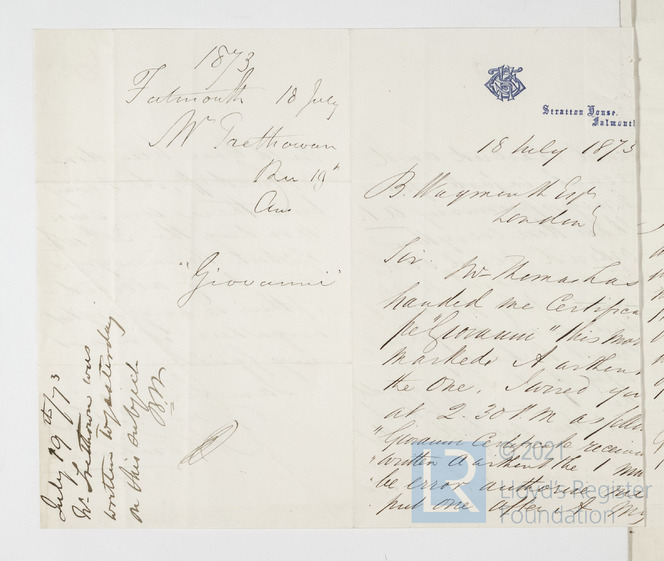 1873
Falmouth 18 July
Mr Trethowan
Rec 19th
Ans
"Giovanni"
July 19th /73
Mr Trethowan was
written to yesterday
on this subject
BW
Stratton House,
Falmouth
18 July 1873
B. Waymouth Esqr
London
Sir.
Mr Thomas has
handed me Certifica
pe "Giovanni" this mor
marked A withou
the One. I wired you
at 2.30 P.M as follo
"Giovanni Certificate receiv
written A without the 1 mu
be error authorise me
put one after A. My
© 2021
LR
Lloyd's Register
Foundation